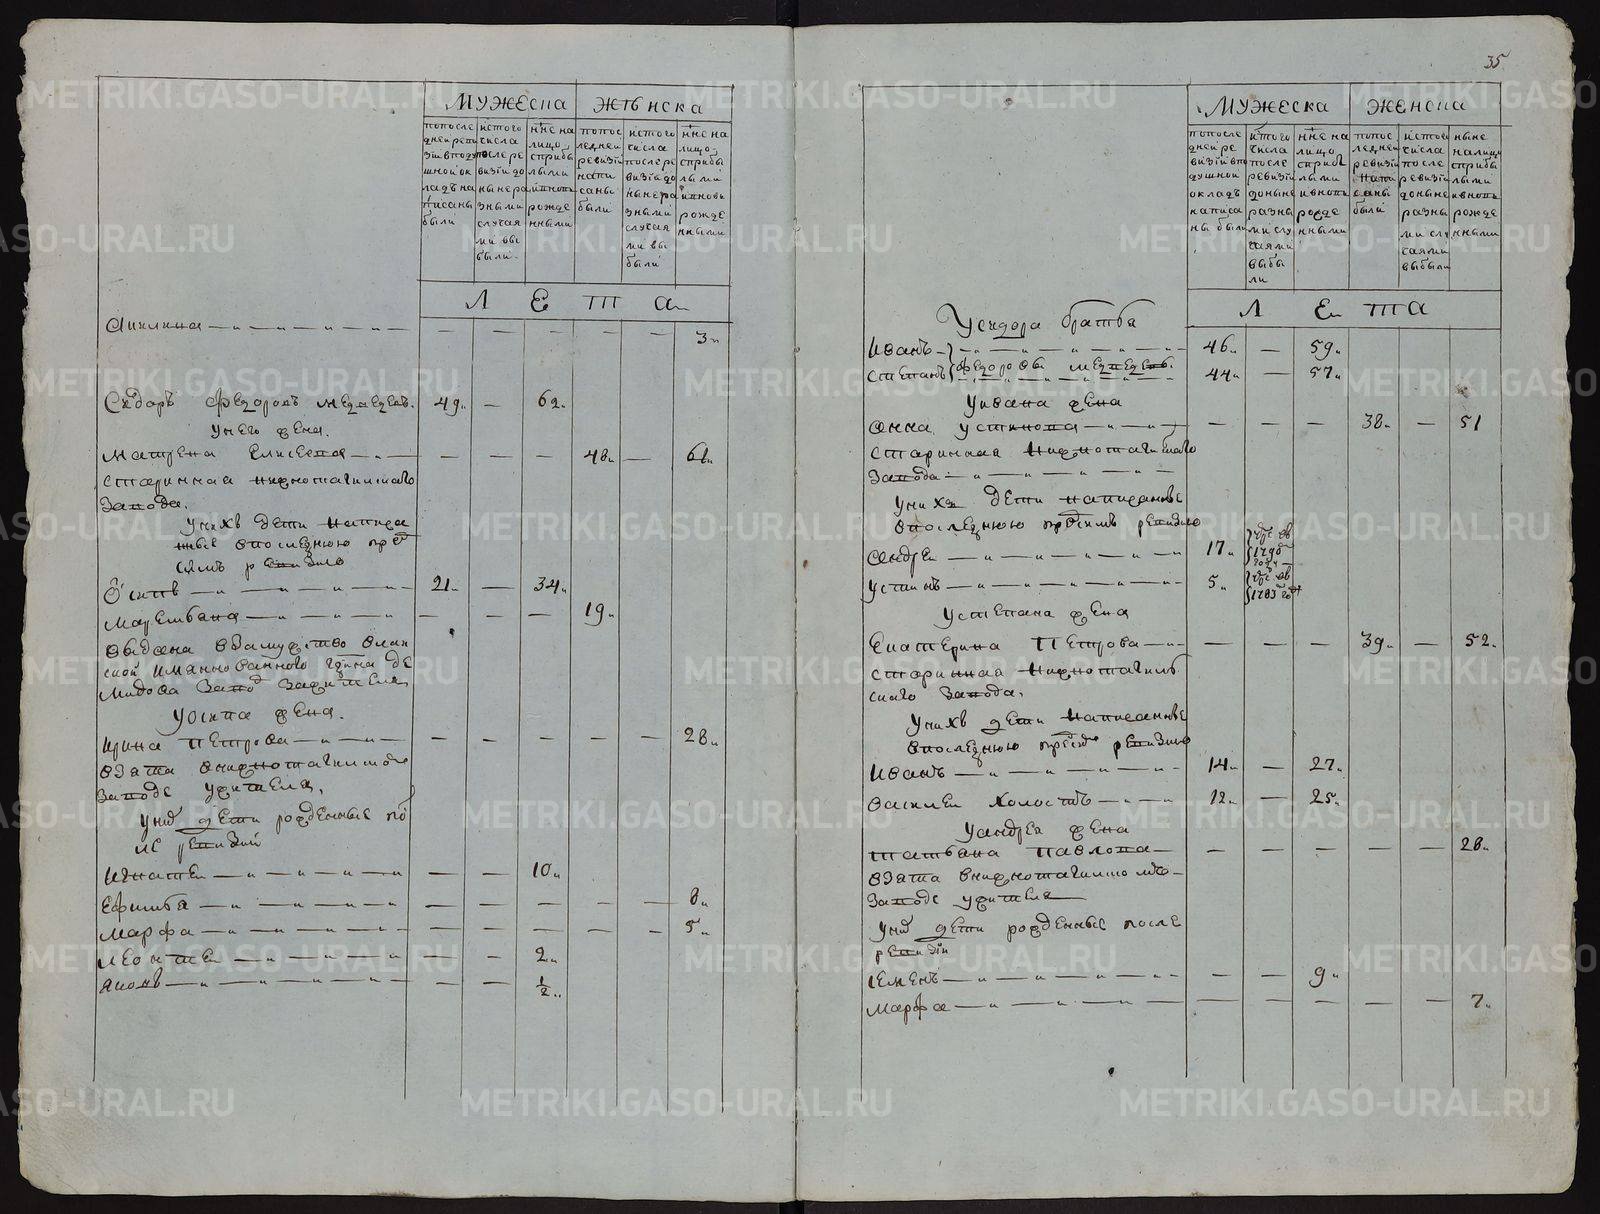 35
Мужеска Женска
попосле дней реви зии вподу шной ок ладъ на писаны были
истого числа после ре визии до ныне ра зными случая ми вы были
ныне на лицо сприбы лыми ивновь рожде нными
попос ледней ревизии напи саны были
истого числа после ре визии до ныне ра зными случая ми вы были
ныне на лицо сприбы лыми ивновь рожде нными
Л Е Т А
Акилина 3
Сидоръ Федоровъ Медведевъ 49 62
Унего жена
Матрена Елисеева 48 61
старинная нижнотагилскаго
завода.
Унихъ дети написа
нные впоследнюю пред
симъ ревизию
Осипъ 21 34
Маремьяна 19
выдана взамужство
мидова завод зажителя
Уосипа жена.
Ирина Петрова 28
взята внижнотагилском
заводе ужителя,
Унихъ дети рожденные по
сле ревизии
Игнатей 10
Ефимья 8
Марфа 5
Леонтей 2
Яковъ 1/2
Мужеска Женска
попосле дней ре визии впо душной окладъ написа ны были
истого числа после ревизии доныне разны ми слу чаями выбы ли
ныне на лицо сприбы лыми ивновь рожде нными
попос ледней ревизии напи саны были
истого числа после ревизии доныне разны ми слу чаями выбыли
ныне налицо сприбы лыми ивновь рожде нными
Л Е Т А
Усидора братья
Иванъ 46 59
Степанъ Федоровы Медведевы 44 57
Уивана жена
Анна Устинова 38 51
старинная нижнотагилскаго
завода
Унихъ дети написанные
впоследнюю предсимъ ревизию
Андрей 17
Устинъ 5
Устепана жена
Екатерина Петрова 39 52
старинная нижнотагил
скаго завода,
Унихъ дети написанные
впоследнюю предсим ревизию
Иванъ 14 27
Василей холостъ 12 25
Уандрея жена
Татьяна Павлова 28
взята внижнотагилском
заводе ужителя
Унихъ дети рожденные после
ревизии
Семенъ 9
Марфа 7
METRIKI.GASO-URAL.RU